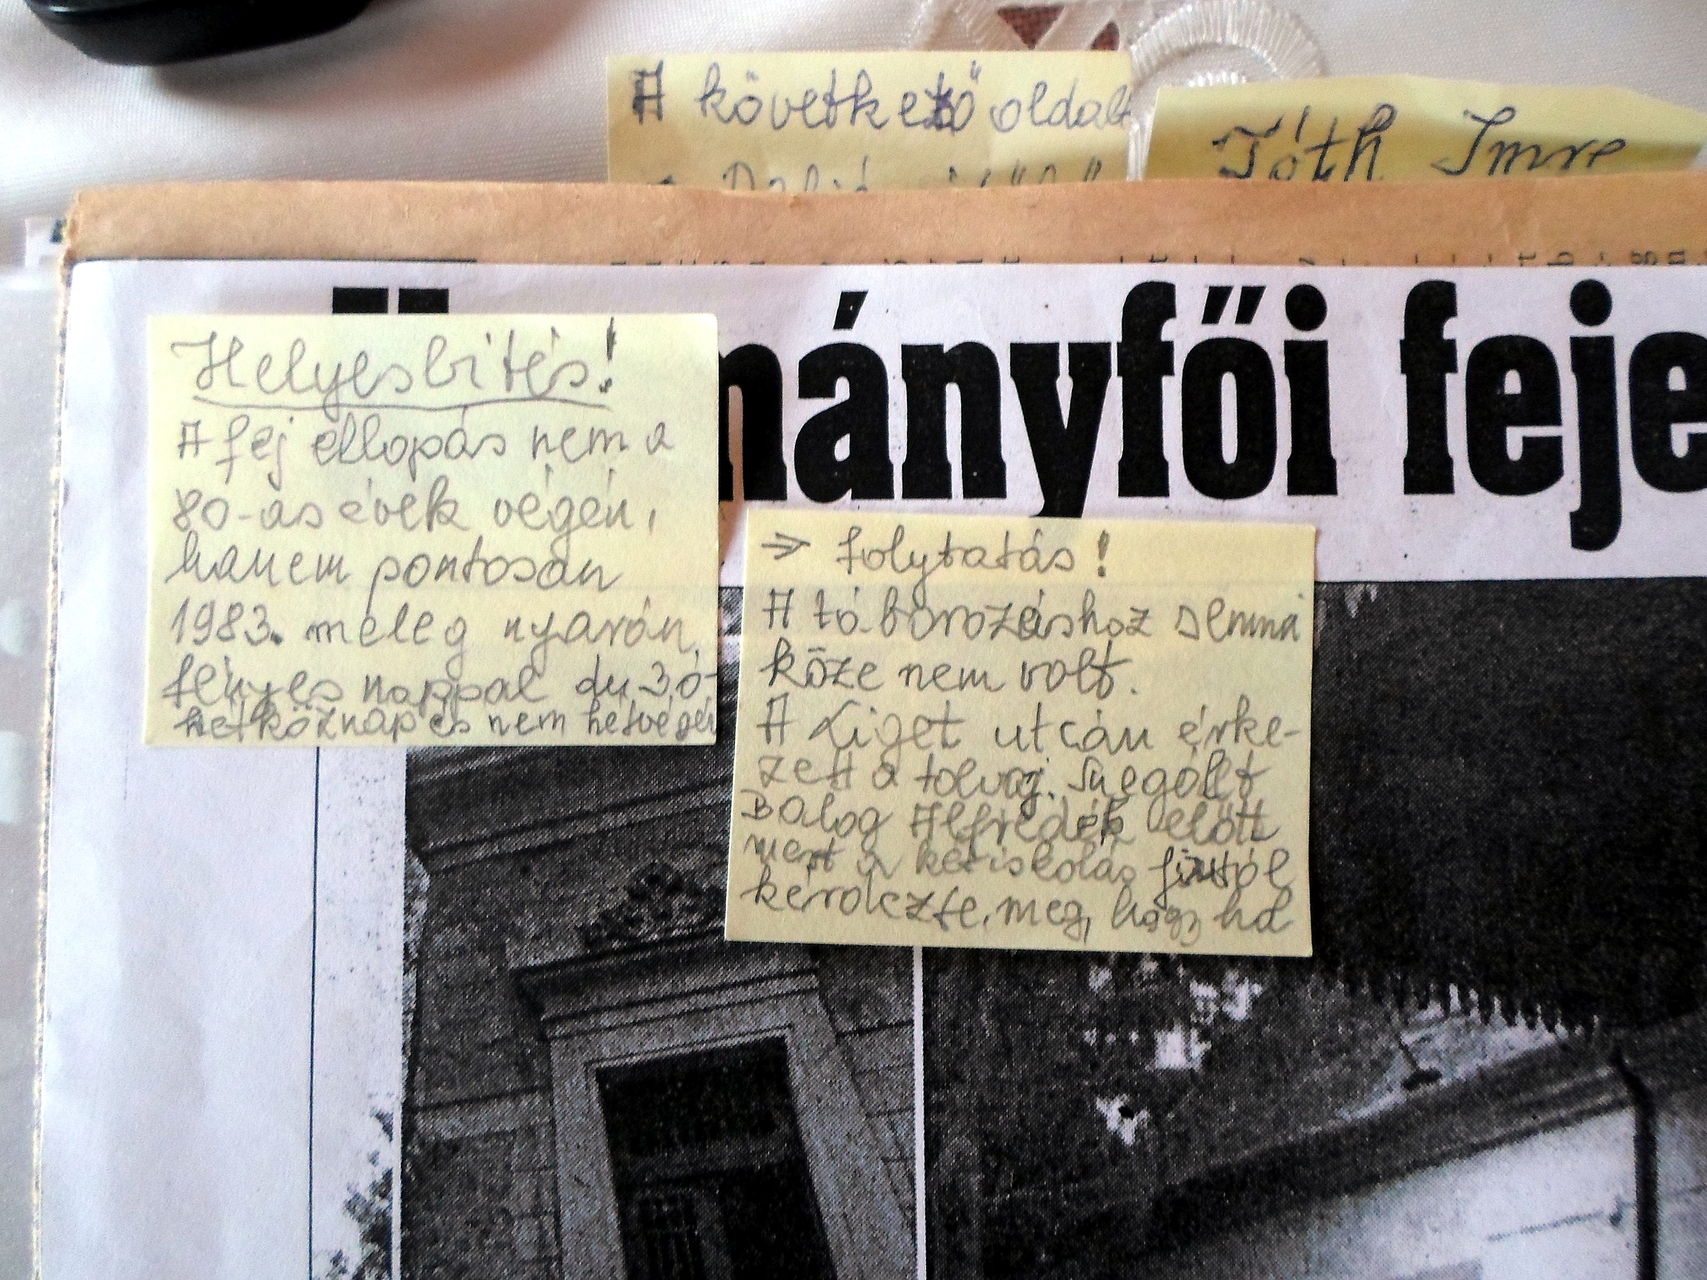 A következő oldalt
Tóth Imre
mányfői feje
Helyesbités!
A fej ellopás nem a
80-as évek végén,
hanem pontosan
1983. meleg nyarán,
fényes nappal du 3 ó-
hetköznap és nem hetvégén
→ folytatás!
A tó borozáshoz semmi
köze nem volt.
A Liget utcán érke-
zett a tolvaj. Megállt
Balog Alfrédék előtt
mert a két iskolás fiutól
kérdezte meg, hogy hol